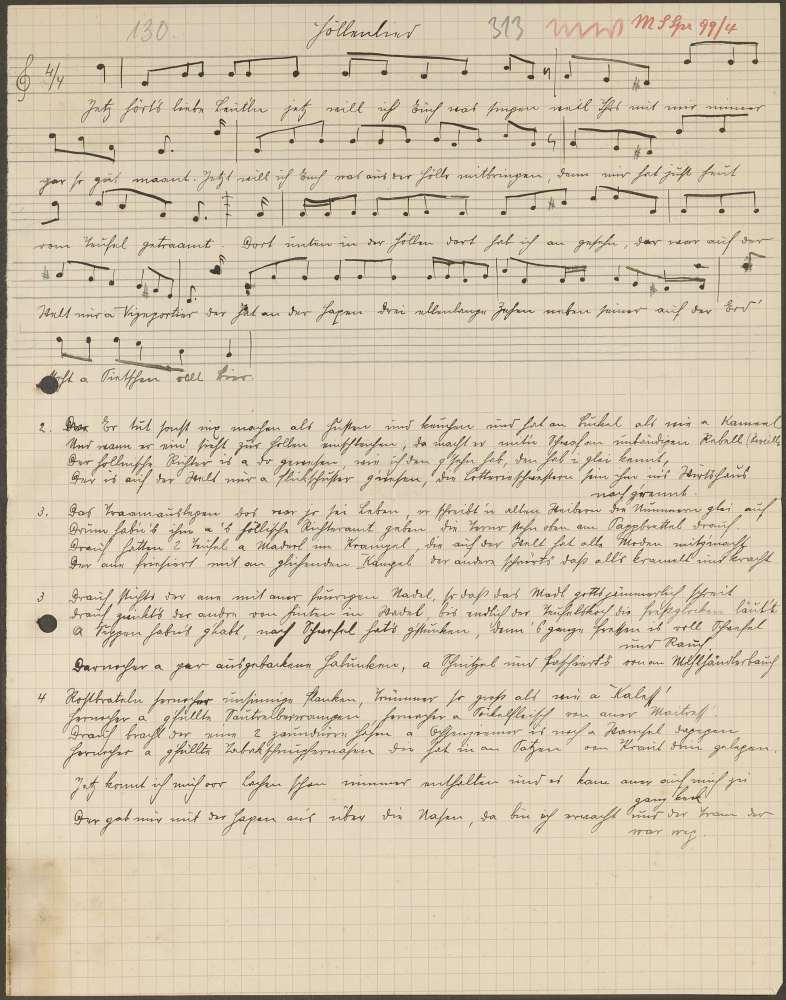 130. Höllenlied 313 MSSpr 99/4
4/4
Jetz hörts liebe Leutln jetz will ich Euch was singen weil Ihrs mit mir immer
gar so gut moant. Jetzt will ich Euch was aus der Hölle mitbringen, denn mir hat just heut
vom Teufel getraamt. Dort unten in der Höllen dort hab ich an gesehn, der war auf der
Welt nur a Vizeportier der hat an der Haxen drei ellenlange Zehen neben seiner auf der Erd'
steht a voll Bier.
2. Er tut sonst nix machen als husten und und hat an Buckel als wie a Kameel
Und wann er ein' sieht zur Höllen, da macht er mitn Schwafen unbändigen Rebell
Der höllische Richter is a do gewesen wie ich den g'sehn hab, den hab i glei kennt,
Der is auf der Welt nur a Flickschuster gewesen, die Lotterieschwestern sein ihm ins Wirtshaus
nach grennt.
3. Das Traamauslegen dos war jo sei Leben, er schreibt in alten Weibern die Nummern glei auf
Drum habn's ihm a 's höllische Richteramt geben. die Terno stehn oben am drauf.
Drauf hatten 2 Teufel a Maderl im Krampel, die auf der Welt hat alle Moden mitgmacht
Der ane frisiert mit an glühenden Kampel der andere schnürts daß alls kramelt und kracht
3 Drauf stichts der ane mit aner feurigen Nadel, so daß das Madl gottsjämmerlich schreit
drauf zwickts der andre von hinten in Wadel bis endlich der Teufelskoch die Freßglocken läut't
A Suppen habns ghabt, nach Schwefel hats gstunken, denn 's ganze Fressen is voll Schwefel
und Rauch.
Darnocher a par ausgebackene Halunken, a Schnitzel und Faschierts von an Mehlhändlerbauch
4 Rostbrateln hernocher unsinnige Flanken, Trümmer so groß als wie a Kaleß!
hernocher a gfüllte, hernocher a Teufelfleisch von aner Maitress.
Drauf bracht der eine 2 Hasen a is noch a dagegen.
Hernocher a gfüllte Tabakschnupfernasen die hat in an Batzen von Kraut drin gelegen.
Jetz konnt ich mich vor Lachen schon nimmer enthalten und es kam aner auf mich zu
ganz keck
Der gab mir mit der Haxen ans über die Nasen, da bin ich erwacht und der Tram der
war weg.